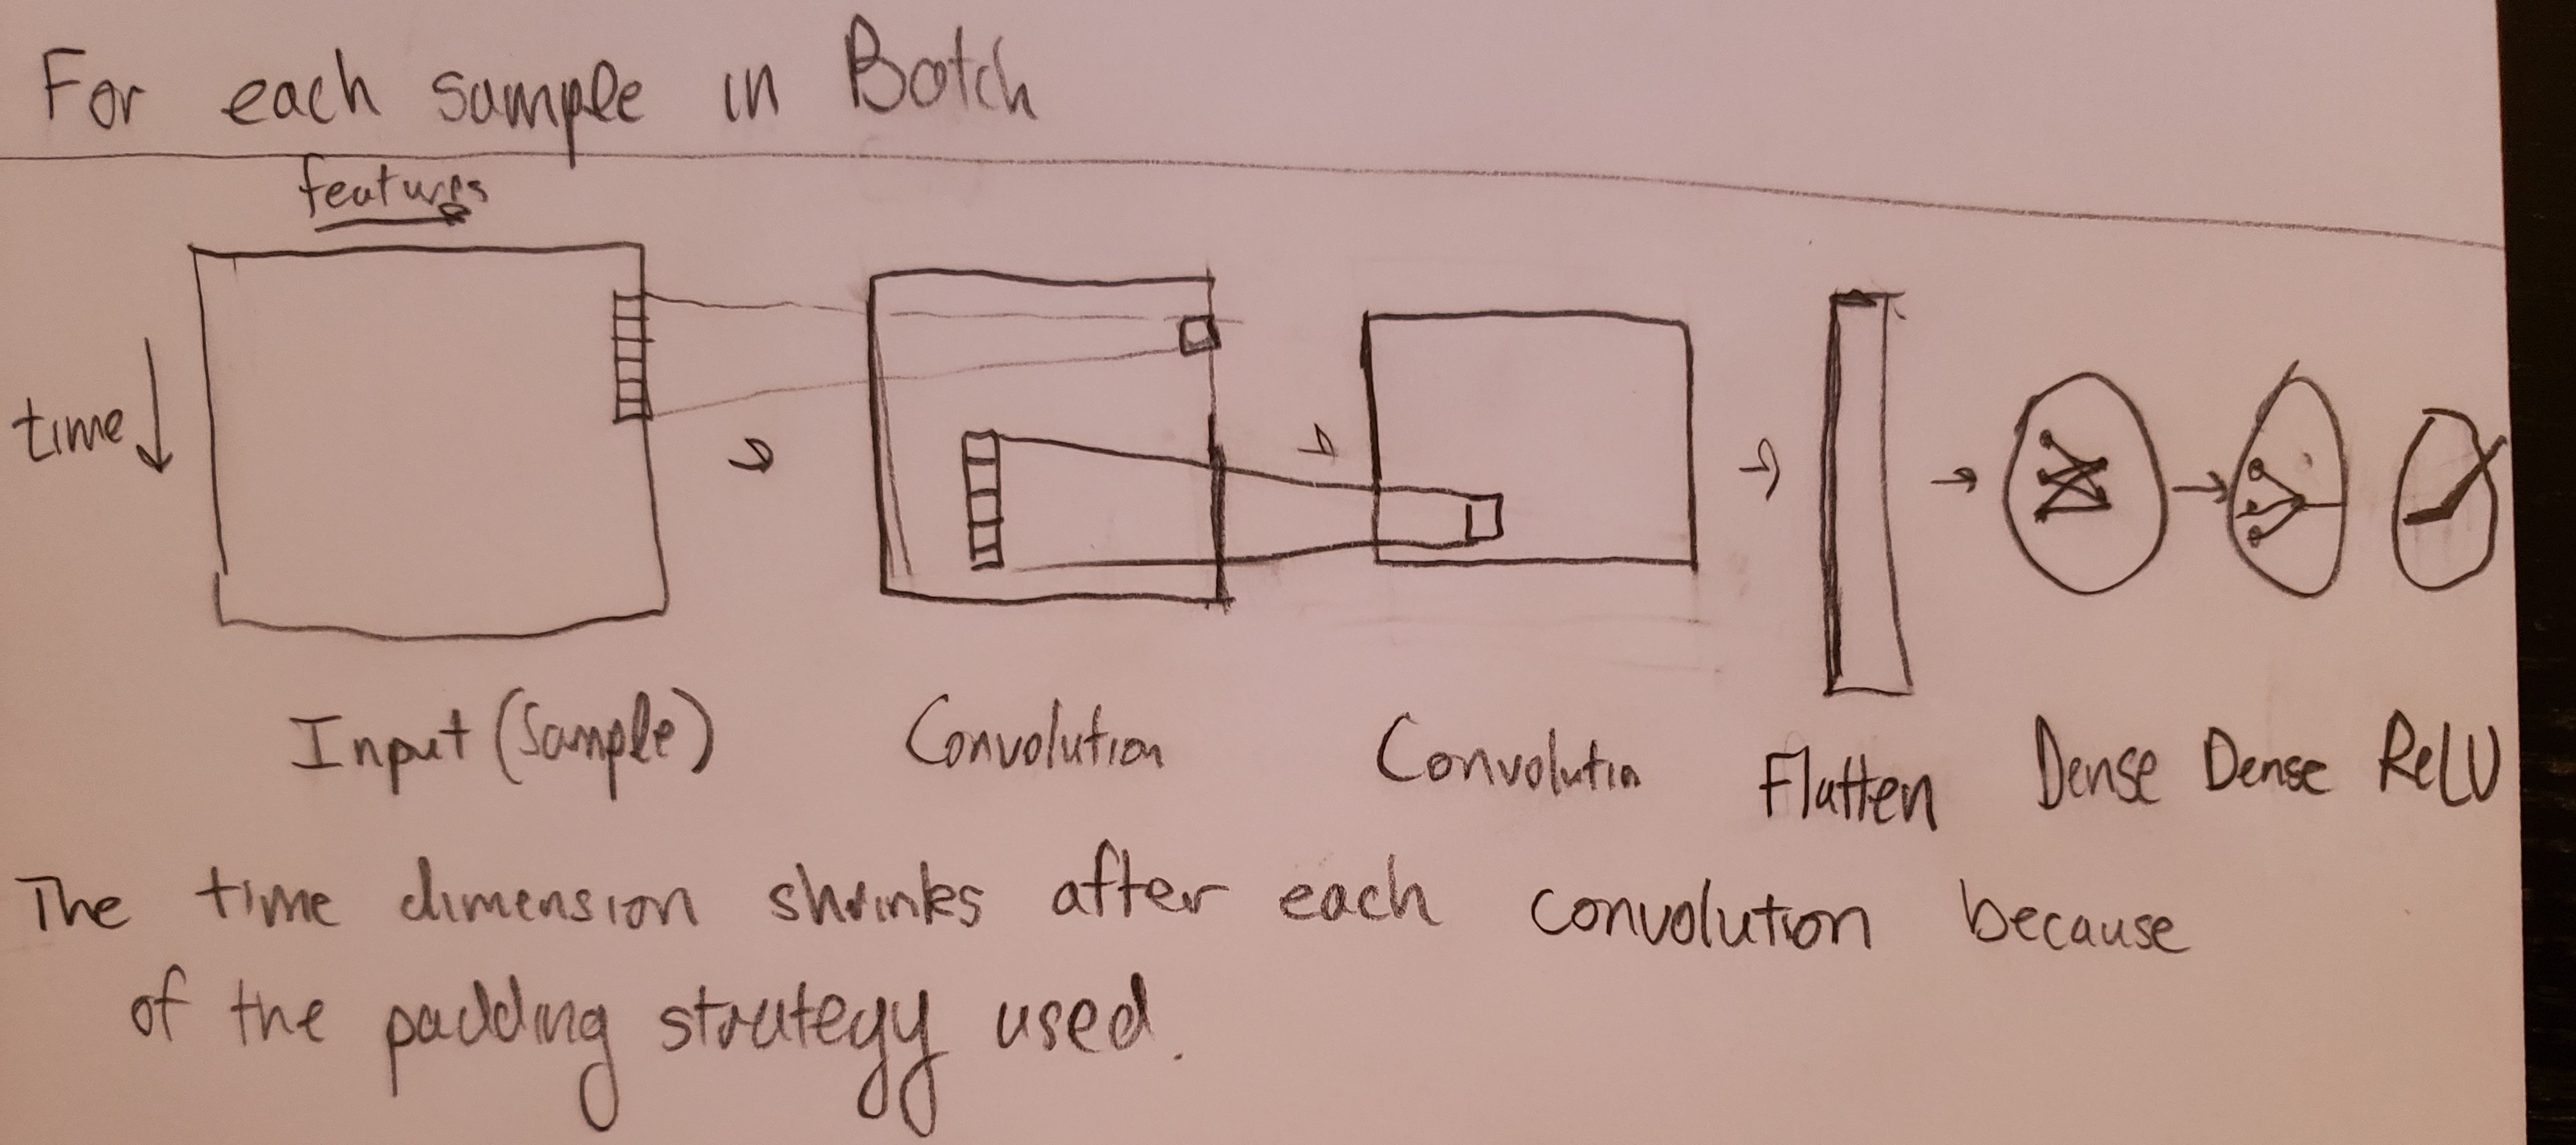 For each sample in Batch
features
time
Input (Sample)
Convolution
Convolutin
Flatten
Dense
Dense
ReLU
The time dimension shrinks after each convolution because
of the padding strategy used.